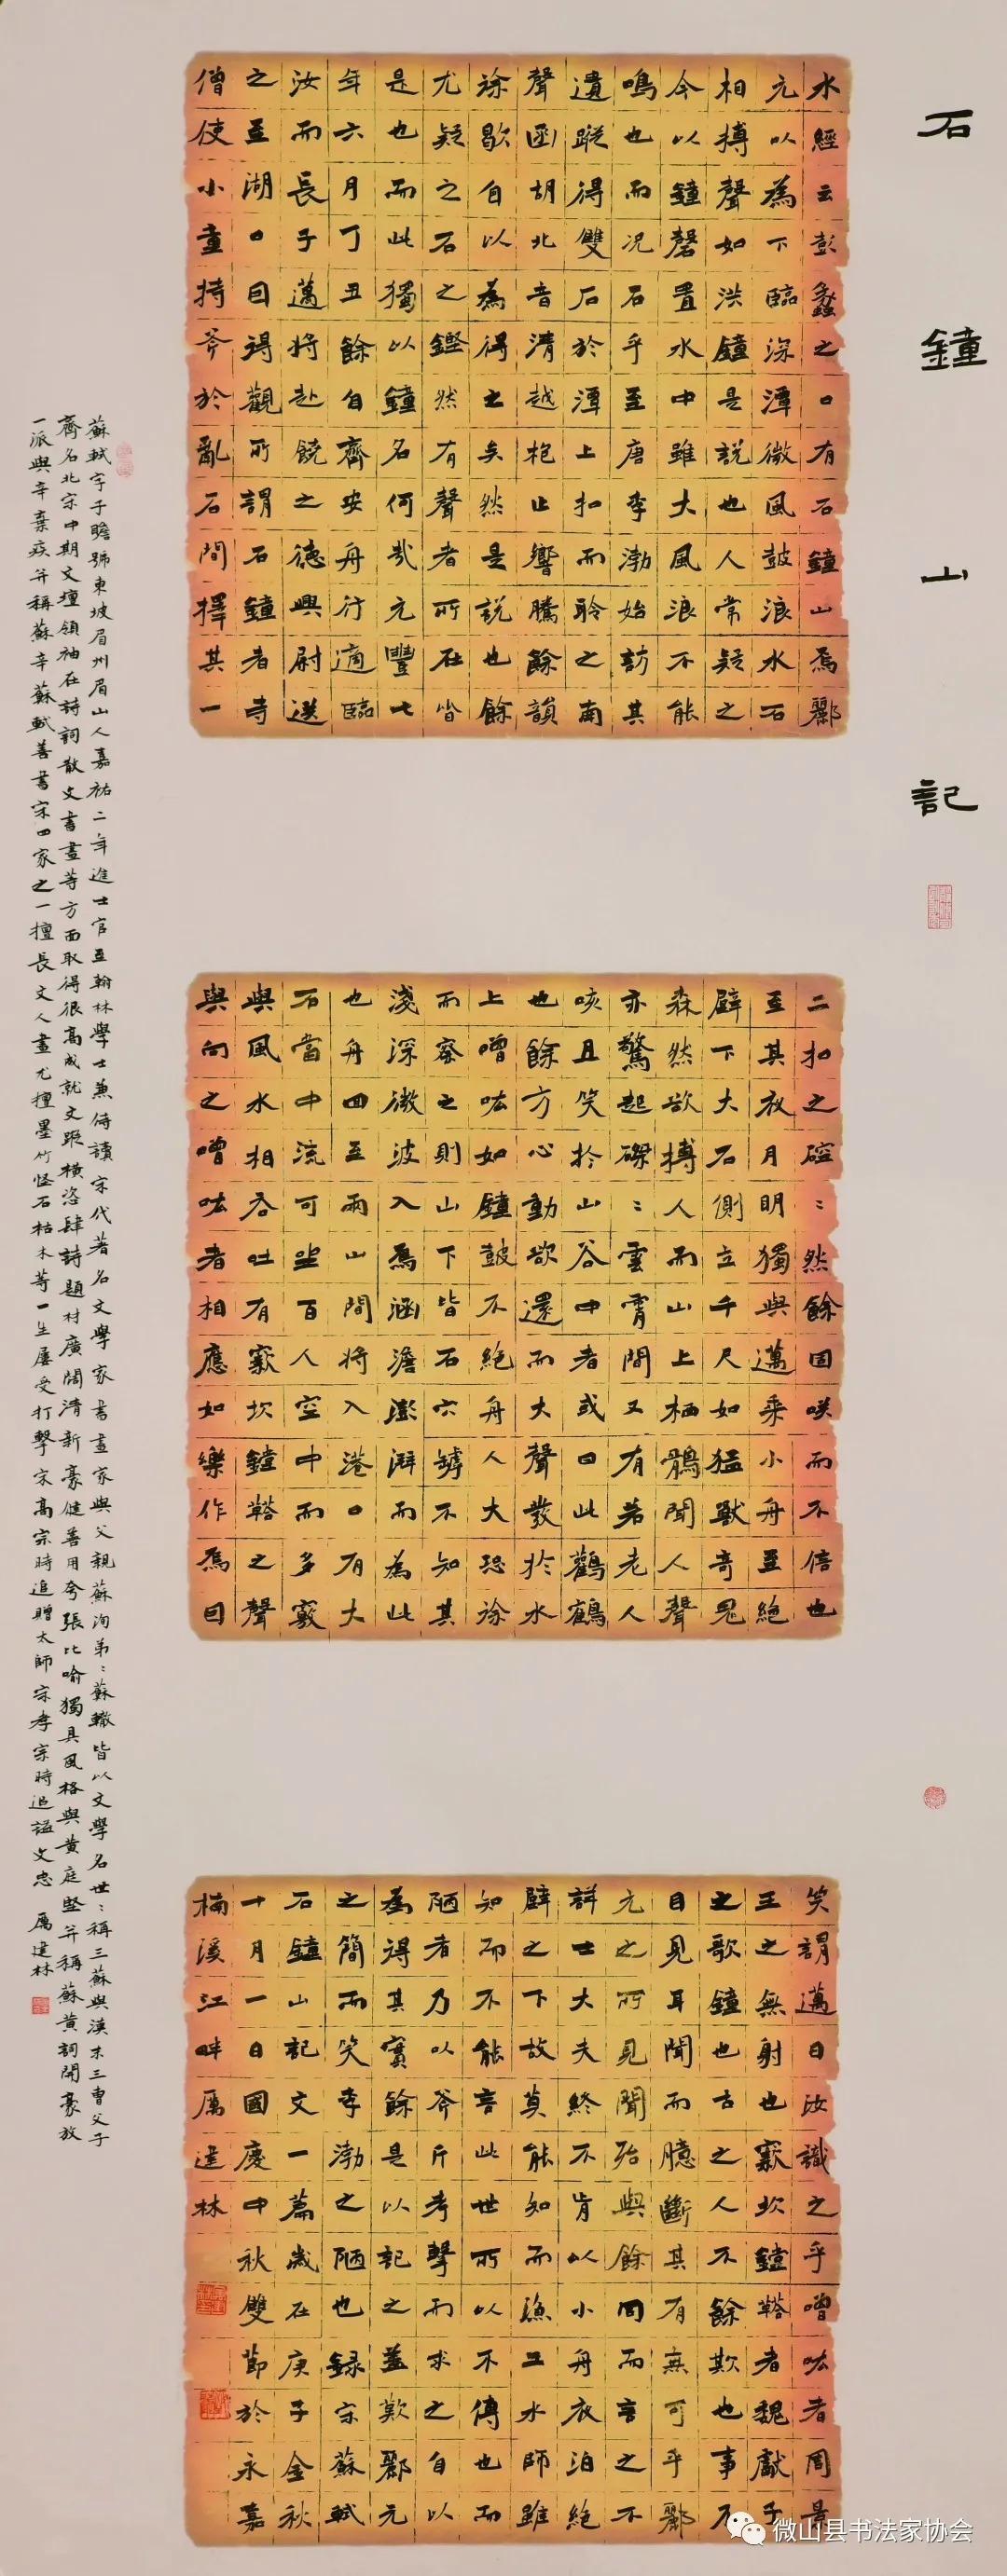 石鐘山記
水經云彭蠡之口有石鐘山焉酈
元以為下臨深潭微風鼓浪水石
相搏聲如洪鐘是説也人常疑之
今以鐘磬置水中雖大風浪不能
鳴也而況石乎至唐李渤始訪其
遺蹤得雙石於潭上扣而聆之南
聲函胡北音清越枹止響騰餘韻
徐歇自以為得之矣然是説也餘
尤疑之石之鏗然有聲者所在皆
是也而此獨以鐘名何哉元豐七
年六月丁丑餘自齊安舟行適臨
汝而長子邁將赴饒之德興尉送
之至湖口因得觀所謂石鐘者寺
僧使小童持斧於亂石間擇其一
二扣之硿〻然餘固咲而不信也
至其夜月明獨與邁乘小舟至絕
壁下大石側立千尺如猛獸奇鬼
森然欲搏人而山上栖鶻聞人聲
亦驚起磔〻雲霄間又有若老人
咳且笑於山谷中者或曰此鸛鶴
也餘方心動欲還而大聲發於水
上噌吰如鐘鼓不絕舟人大恐徐
而察之則山下皆石穴罅不知其
淺深微波入焉涵澹澎湃而為此
也舟回至兩山間將入港口有大
石當中流可坐百人空中而多竅
與風水相吞吐有窾坎鏜鞳之聲
與向之噌吰者相應如樂作焉因
笑謂邁曰汝識之乎噌吰者周景
王之無射也窾坎鏜鞳者魏獻子
之歌鐘也古之人不餘欺也事不
目見耳聞而臆斷其有無可乎酈
元之所見聞殆與餘同而言之不
詳士大夫終不肯以小舟夜泊絕
壁之下故莫能知而漁工水師雖
知而不能言此世所以不傳也而
陋者乃以斧斤考擊而求之自以
為得其實餘是以記之蓋歎酈元
之簡而笑李渤之陋也録宋蘇軾
石鐘山記文一篇歲在庚子金秋
十月一日國慶中秋雙節於永嘉
楠溪江畔厲建林
蘇軾字子瞻號東坡眉州眉山人嘉祐二年進士官至翰林學士兼侍讀宋代著名文學家書畫家與父親蘇洵弟〻蘇轍皆以文學名世〻稱三蘇與漢末三曹父子
齊名北宋中期文壇領袖在詩詞散文書畫等方面取得很高成就文蹤橫恣肆詩題材廣闊清新豪健善用夸張比喻獨具風格與黄庭堅并稱蘇黄詞開豪放
一派與辛棄疾并稱蘇辛蘇軾善書宋四家之一擅長文人畫尤擅墨竹怪石枯木等一生屢受打擊宋高宗時追贈太師宗孝宗時追謚文忠 厲建林
微山县书法家协会